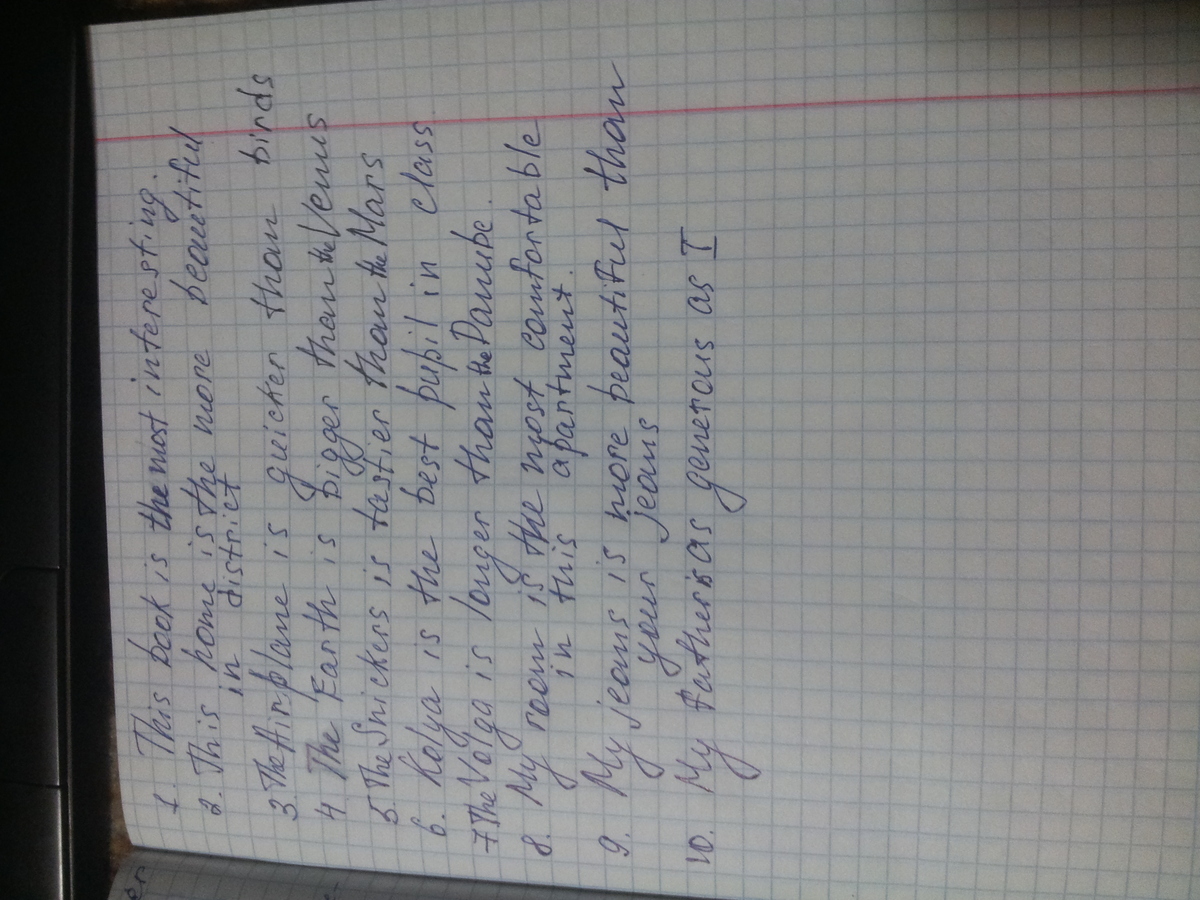 1. This book is the most interesting.
2. This home is the more beautiful
in district
3. The Airplane is quicker than birds
4 The Earth is bigger than the Venus
5. The Snickers is tastier than the Mars
6. Kolya is the best pupil in class
7 The Volga is longer than the Danube.
8. My room is the most comfortable
in this apartment.
9. My jeans is more beautiful than
your jeans
10. My father is as generous as I
er